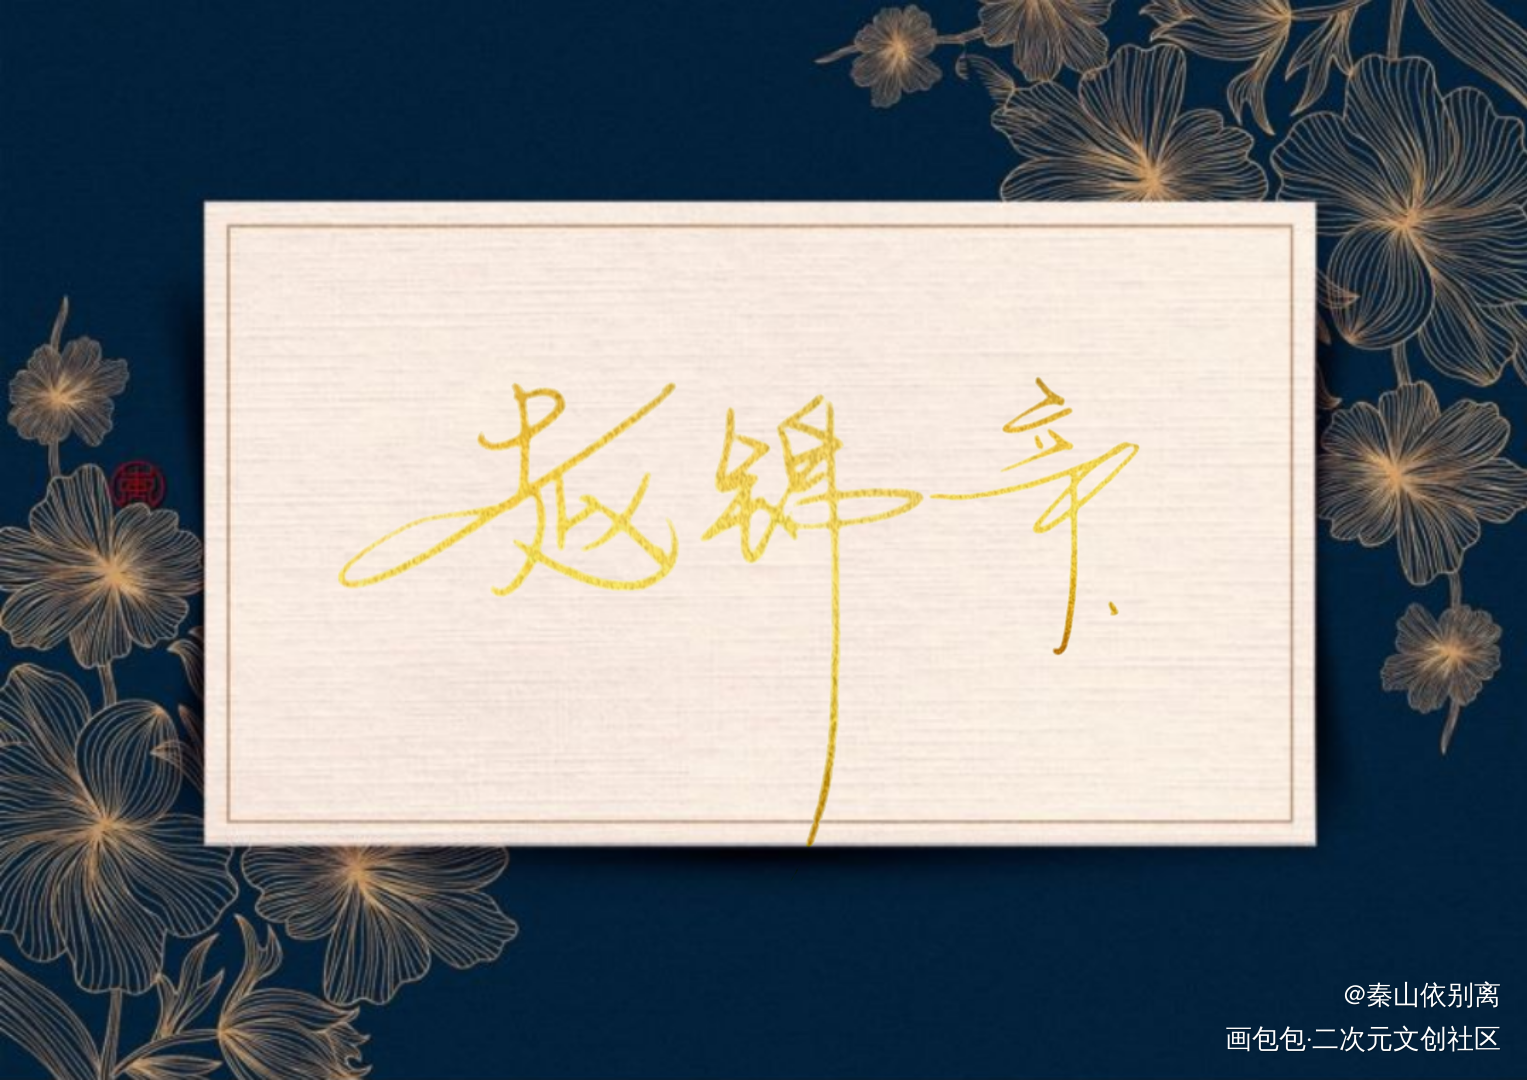 赵锦辛
@秦山依别离
画包包·二次元文创社区